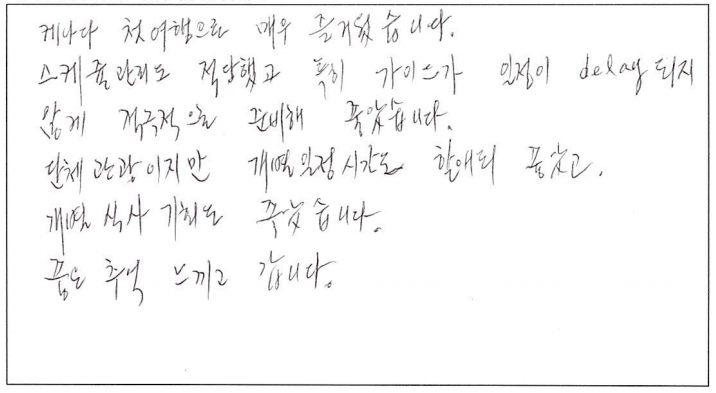 케나다 첫여행으로 매우 즐거웠습니다.
스케쥴관리도 적당했고 특히 가이드가 일정이 delay 되지
않게 적극적으로 준비해 좋았습니다.
단체 관광이지만 개별일정 시간도 할애되 좋았고,
개별 식사 기회도 좋았습니다.
좋은 추억 느끼고 갑니다.